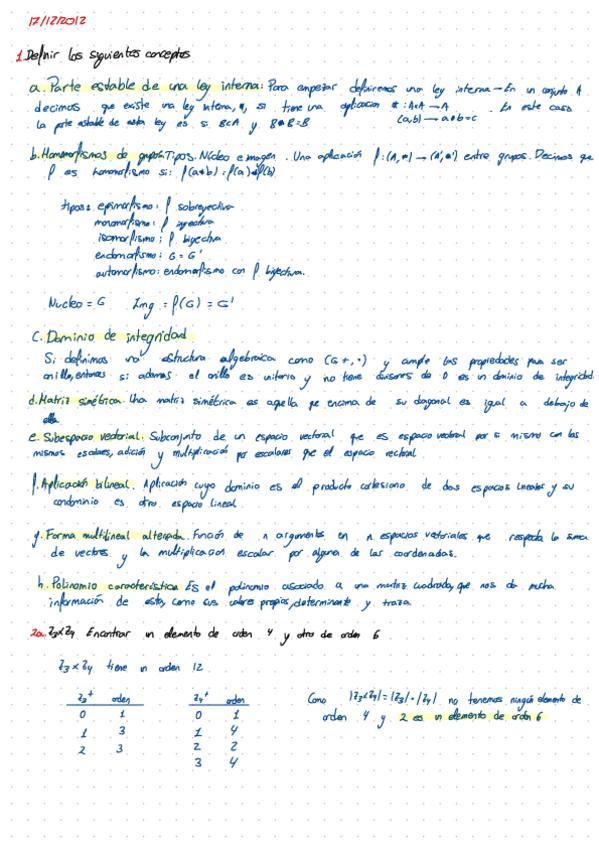 17/12/2012
1. Definir los siguientes conceptos
a. Parte estable de una ley interna: Para empezar definiremos una ley interna → En un conjunto A
decimos que existe una ley interna, *, si tiene una aplicación * : A×A → A . En este caso
(a,b) → a*b=c
la parte estable de esta ley es si B⊂A y B*B=B
b. Homomorfismos de grupos. Tipos. Núcleo e imagen. Una aplicación f:(A,*) → (A',*') entre grupos. Decimos que
f es homomorfismo si: f(a*b) = f(a)*f(b)
tipos: epimorfismo: f sobreyectiva
monomorfismo: f inyectiva
isomorfismo: f biyectiva
endomorfismo: G = G'
automorfismo: endomorfismo con f biyectiva.
Nucleo = G Img = f(G) = G'
C. Dominio de integridad
Si definimos una estructura algebraica como (G+,·) y cumple las propiedades para ser
anillo, entonces si además el anillo es unitario y no tiene divisores de 0 es un dominio de integridad.
d. Matriz simétrica. Una matriz simétrica es aquella que encima de su diagonal es igual a debajo de
ella.
e. Subespacio vectorial. Subconjunto de un espacio vectorial que es espacio vectorial por si mismo con las
mismos escalares, adición y multiplicación por escalares que el espacio vectorial
f. Aplicación bilineal. Aplicación cuyo dominio es el producto cartesiano de dos espacios lineales y su
condominio es otro espacio lineal
g. Forma multilineal alternada. Función de n argumentos en n espacios vectoriales que respeta la suma
de vectores y la multiplicacion escalar por alguna de las coordenadas.
h. Polinomio característico Es el polinomio asociado a una matriz cuadrada, que nos da mucha
información de esta, como sus valores propios, determinante y traza.
2a. Z3×Z4 Encontrar un elemento de orden 4 y otro de orden 6
Z3×Z4 tiene un orden 12
Z3+ orden
0 1
1 3
2 3
Z4+ orden
0 1
1 4
2 2
3 4
Como |Z3×Z4| = |Z3|·|Z4| no tenemos ningún elemento de
orden 4 y 2 es un elemento de orden 6